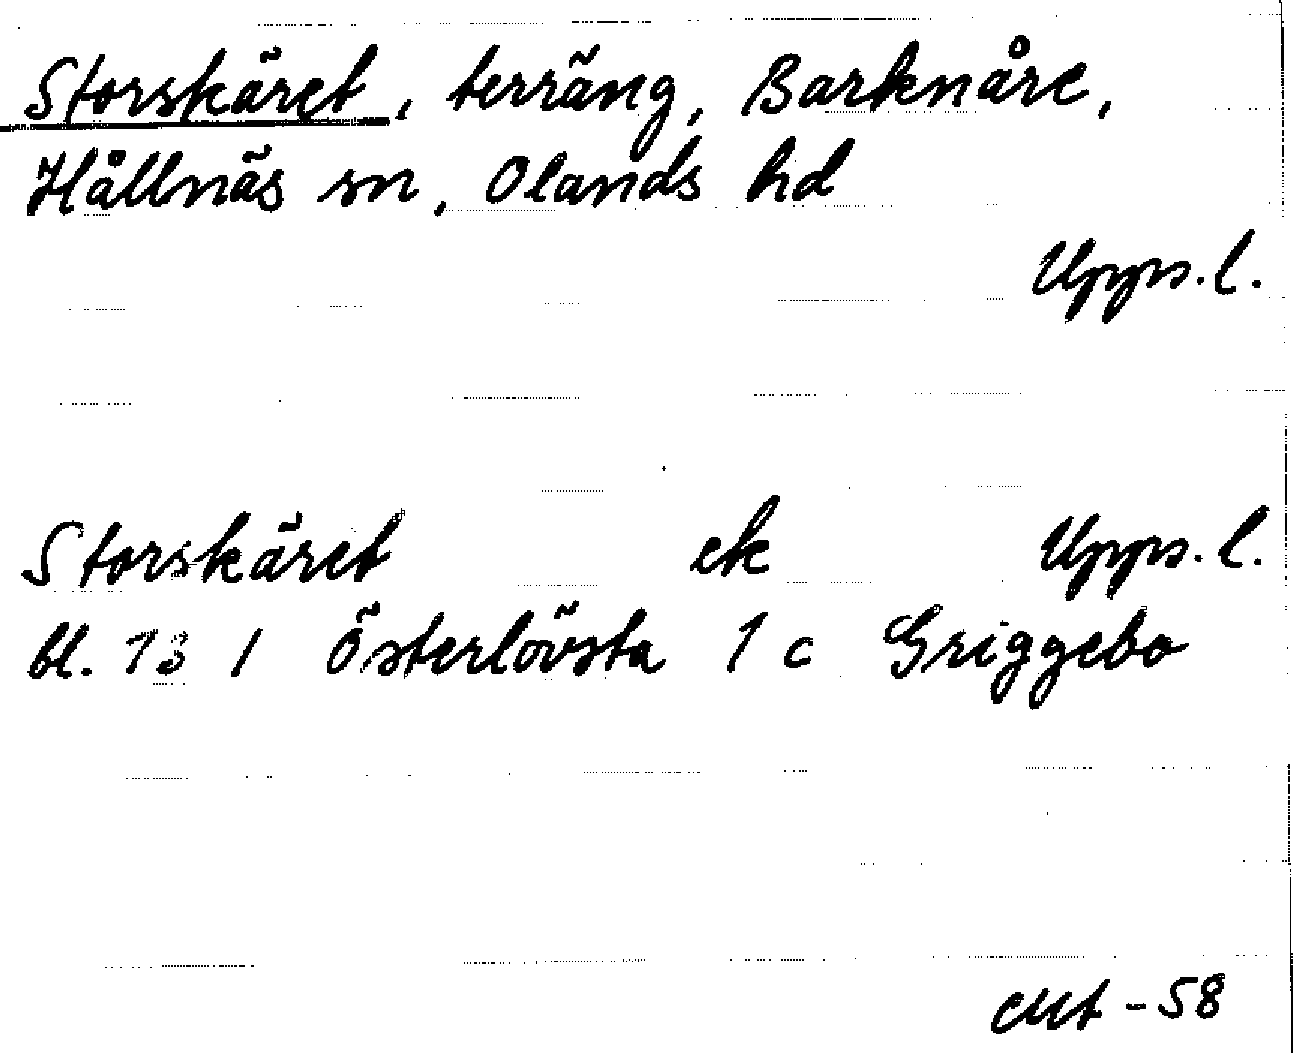 Storskäret, terräng, Barknåre,
Hållnäs sn, Olands hd
Upps. l.
Storskäret ek Upps. l.
bl. 13 I Österlövsta 1 c Griggebo
-58